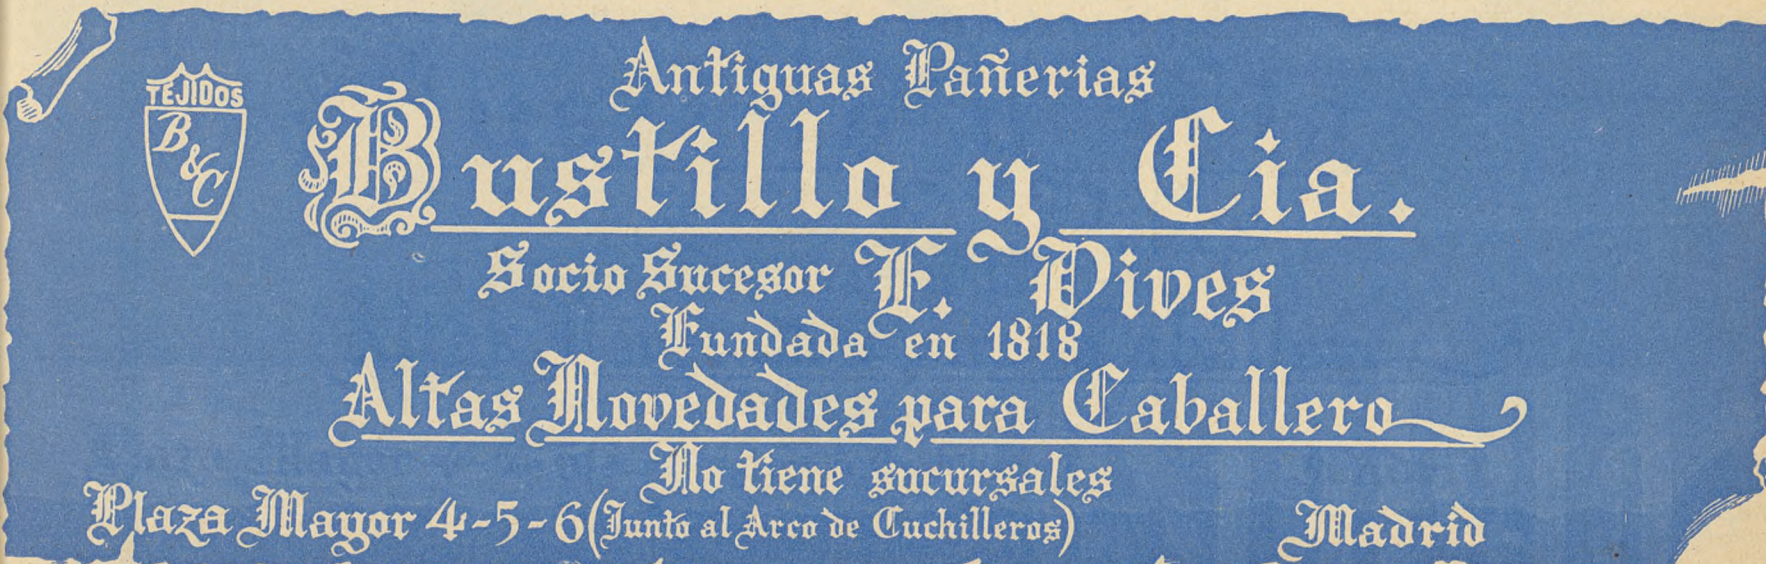 TEJIDOS
B
&C
Antiguas Pañerias
Bustillo y Cia.
Socio Sucesor E. Vives
Fundada en 1818
Altas Novedades para Caballero
No tiene sucursales
Plaza Mayor 4-5-6 (Junto al Arco de Cuchilleros) Madrid